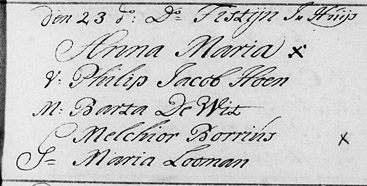 den 23 do: Do Fistijn In Huijs
Anna Maria x
V: Philip Jacob Hoen
M: Barta De Wit
Melchior Borrius x
G= Maria Looman